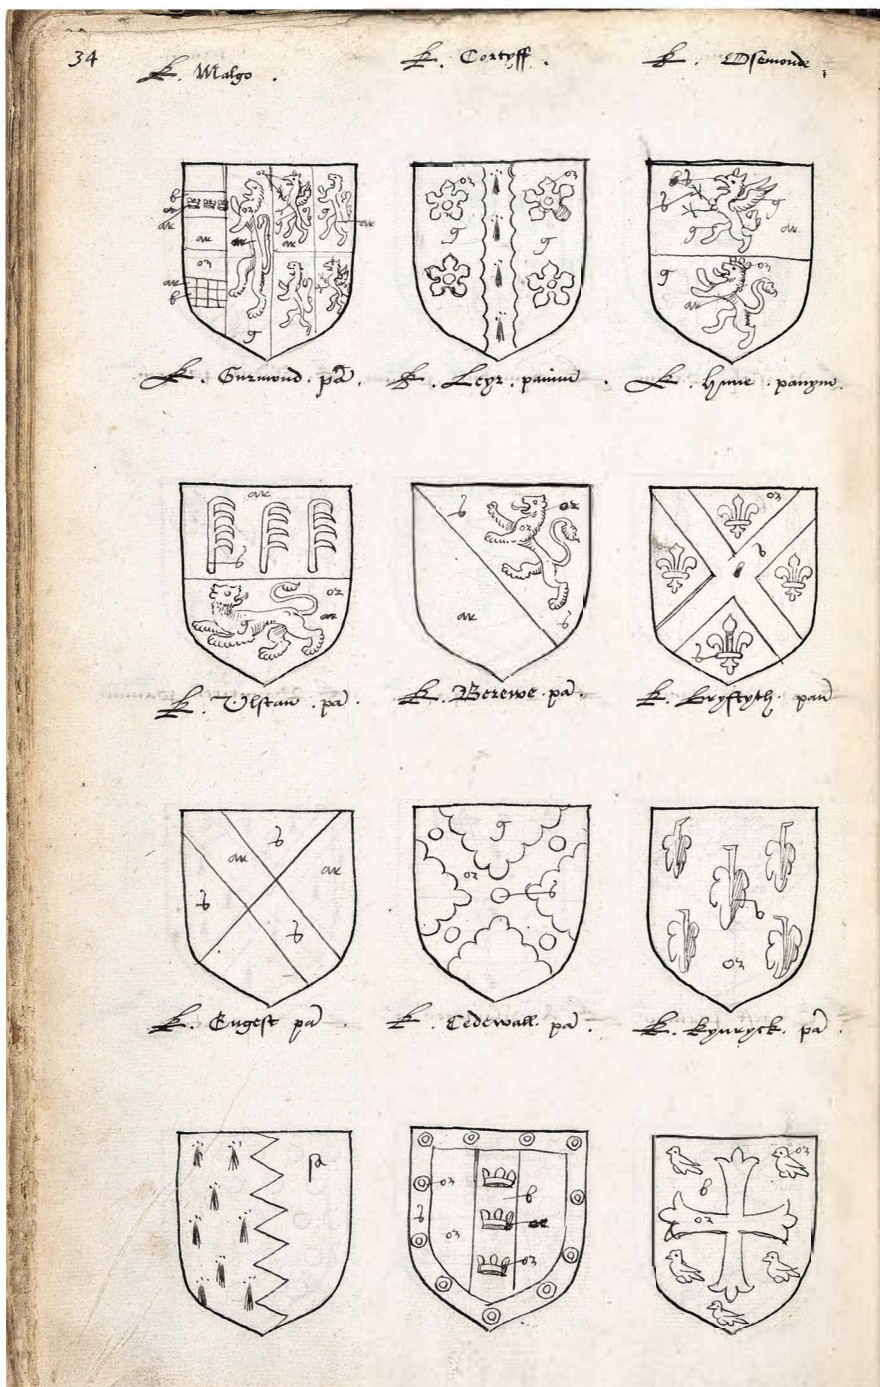 34
k. Malgo .
k. Cortyff .
k. Osemonde
b
or
ar
ar
or
ar
b
ar
or
ar
ar
g
or
or
g
g
b
g
g
ar
g
or
ar
k. Gurmond . pa .
k. Leyr . panim .
k. hune . panym .
ar
b
or
g
ar
b
or
or
ar
b
or
b
b
k. Vlstan . pa .
k. Berewe . pa .
k. Gryffyth . pan
b
ar
ar
b
b
g
or
b
b
or
k. Engest pa .
k. Cedewall . pa .
k. kynryck . pa .
p
or
b
or
b
or
or
or
b
or